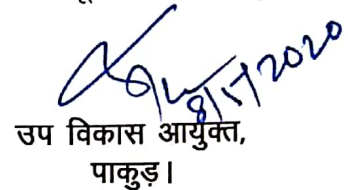 8/1/2020
उप विकास आयुक्त,
पाकुड़।